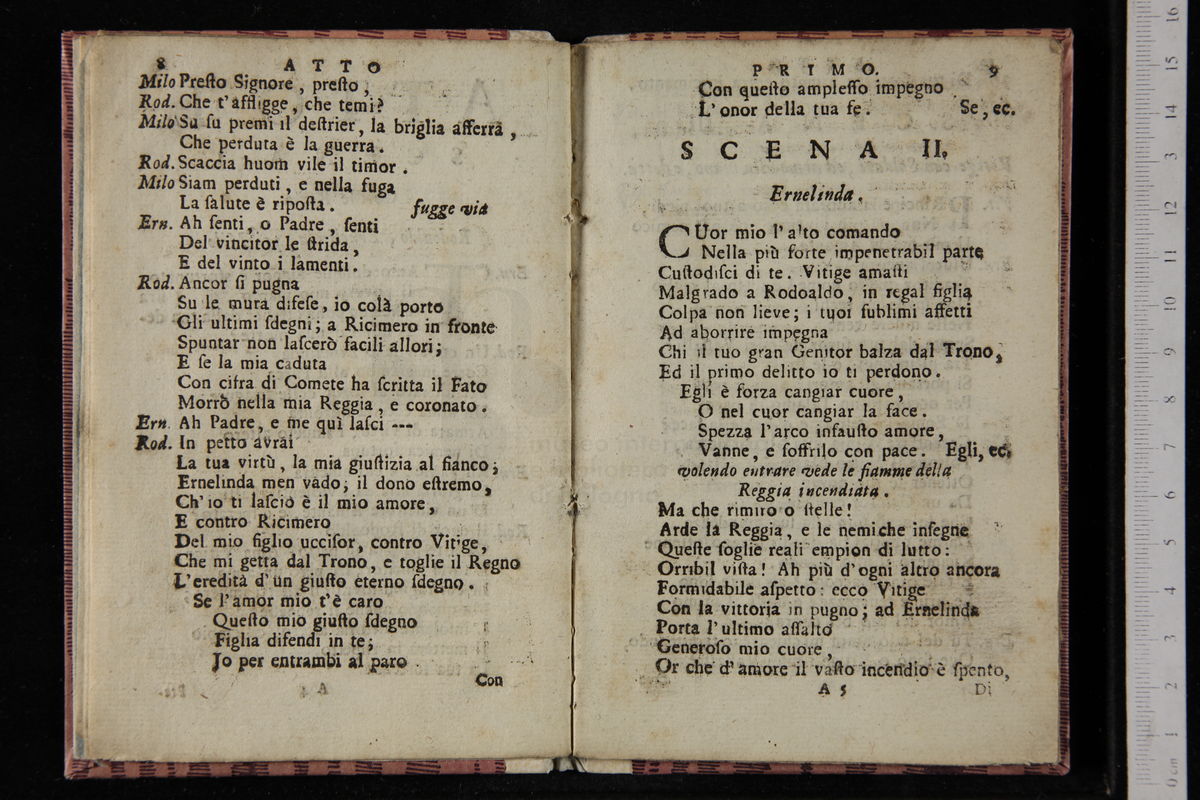 8 ATTO
Milo Preſto Signore, preſto,
Rod. Che t'affligge, che temi?
Milo Su ſu premi il deſtrier, la briglia afferra,
Che perduta è la guerra.
Rod. Scaccia huom vile il timor.
Milo Siam perduti, e nella fuga
La ſalute è ripoſta. fugge via
Ern. Ah ſenti, o Padre, ſenti
Del vincitor le ſtrida,
E del vinto i lamenti.
Rod. Ancor ſi pugna
Su le mura difeſe, io colà porto
Gli ultimi ſdegni; a Ricimero in fronte
Spuntar non laſcerò facili allori;
E ſe la mia caduta
Con cifra di Comete ha ſcritta il Fato
Morrò nella mia Reggia, e coronato.
Ern. Ah Padre, e me quì laſci ---
Rod. In petto avrai
La tua virtù, la mia giuſtizia al fianco;
Ernelinda men vado; il dono eſtremo,
Ch'io ti laſciò è il mio amore,
E contro Ricimero
Del mio figlio ucciſor, contro Vitige,
Che mi getta dal Trono, e toglie il Regno
L'eredità d'un giuſto eterno ſdegno.
Se l'amor mio t'è caro
Queſto mio giuſto ſdegno
Figlia difendi in te;
Jo per entrambi al paro
Con
PRIMO. 9
Con queſto ampleſſo impegno
L'onor della tua fe. Se, ec.
SCENA II.
Ernelinda.
CUor mio l'alto comando
Nella più forte impenetrabil parte
Cuſtodiſci di te. Vitige amaſti
Malgrado a Rodoaldo, in regal figlia
Colpa non lieve; i tuoi ſublimi affetti
Ad aborrire impegna
Chi il tuo gran Genitor balza dal Trono,
Ed il primo delitto io ti perdono.
Egli è forza cangiar cuore,
O nel cuor cangiar la face.
Spezza l'arco infauſto amore,
Vanne, e ſoffrilo con pace. Egli, ec.
volendo entrare vede le fiamme della
Reggia incendiata.
Ma che rimiro o ſtelle!
Arde la Reggia, e le nemiche inſegne
Queſte ſoglie reali empion di lutto:
Orribil viſta! Ah più d'ogni altro ancora
Formidabile aſpetto: ecco Vitige
Con la vittoria in pugno; ad Ernelinda
Porta l'ultimo aſſalto
Generoſo mio cuore,
Or che d'amore il vaſto incendio è ſpento,
A 5 Di
0 cm 1 2 3 4 5 6 7 8 9 10 11 12 13 14 15 16